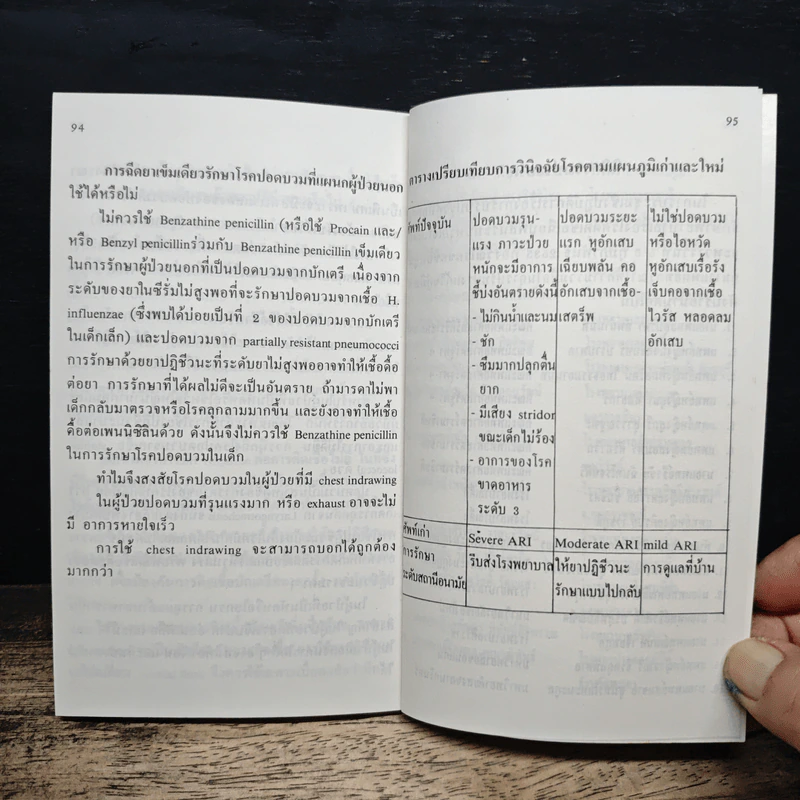 94
การฉีดยาเข็มเดียวรักษาโรคปอดบวมที่แผนกผู้ป่วยนอก
ใช้ได้หรือไม่
ไม่ควรใช้ Benzathine penicillin (หรือใช้ Procain และ/
หรือ Benzyl penicillinร่วมกับ Benzathine penicillin เข็มเดียว
ในการรักษาผู้ป่วยนอกที่เป็นปอดบวมจากบักเตรี เนื่องจาก
ระดับของยาในซีรั่มไม่สูงพอที่จะรักษาปอดบวมจากเชื้อ H.
influenzae (ซึ่งพบได้บ่อยเป็นที่ 2 ของปอดบวมจากบักเตรี
ในเด็กเล็ก) และปอดบวมจาก partially resistant pneumococci
การรักษาด้วยยาปฏิชีวนะที่ระดับยาไม่สูงพออาจทำให้เชื้อดื้อ
ต่อยา การรักษาที่ได้ผลไม่ดีจะเป็นอันตราย ถ้ามารดาไม่พา
เด็กกลับมาตรวจหรือโรคลุกลามมากขึ้น และยังอาจทำให้เชื้อ
ดื้อต่อเพนนิซิลินด้วย ดังนั้นจึงไม่ควรใช้ Benzathine penicillin
ในการรักษาโรคปอดบวมในเด็ก
ทำไมจึงสงสัยโรคปอดบวมในผู้ป่วยที่มี chest indrawing
ในผู้ป่วยปอดบวมที่รุนแรงมาก หรือ exhaust อาจจะไม่
มี อาการหายใจเร็ว
การใช้ chest indrawing จะสามารถบอกได้ถูกต้อง
มากกว่า
95
ตารางเปรียบเทียบการวินิจฉัยโรคตามแผนภูมิเก่าและใหม่
ศัพท์ปัจจุบัน
ปอดบวมรุน-
แรง ภาวะป่วย
หนักจะมีอาการ
ชี้บ่งอันตรายดังนี้
- ไม่กินน้ำและนม
- ชัก
- ซึมมากปลุกตื่น
ยาก
- มีเสียง stridor
ขณะเด็กไม่ร้อง
- อาการของโรค
ขาดอาหาร
ระดับ 3
ปอดบวมระยะ
แรก หูอักเสบ
เฉียบพลัน คอ
อักเสบจากเชื้อ-
เสตร็พ
ไม่ใช่ปอดบวม
หรือไอหวัด
หูอักเสบเรื้อรัง
เจ็บคอจากเชื้อ
ไวรัส หลอดลม
อักเสบ
ศัพท์เก่า
Severe ARI
Moderate ARI
mild ARI
การรักษา
ระดับสถานีอนามัย
รีบส่งโรงพยาบาล
ให้ยาปฏิชีวนะ
รักษาแบบไปกลับ
การดูแลที่บ้าน